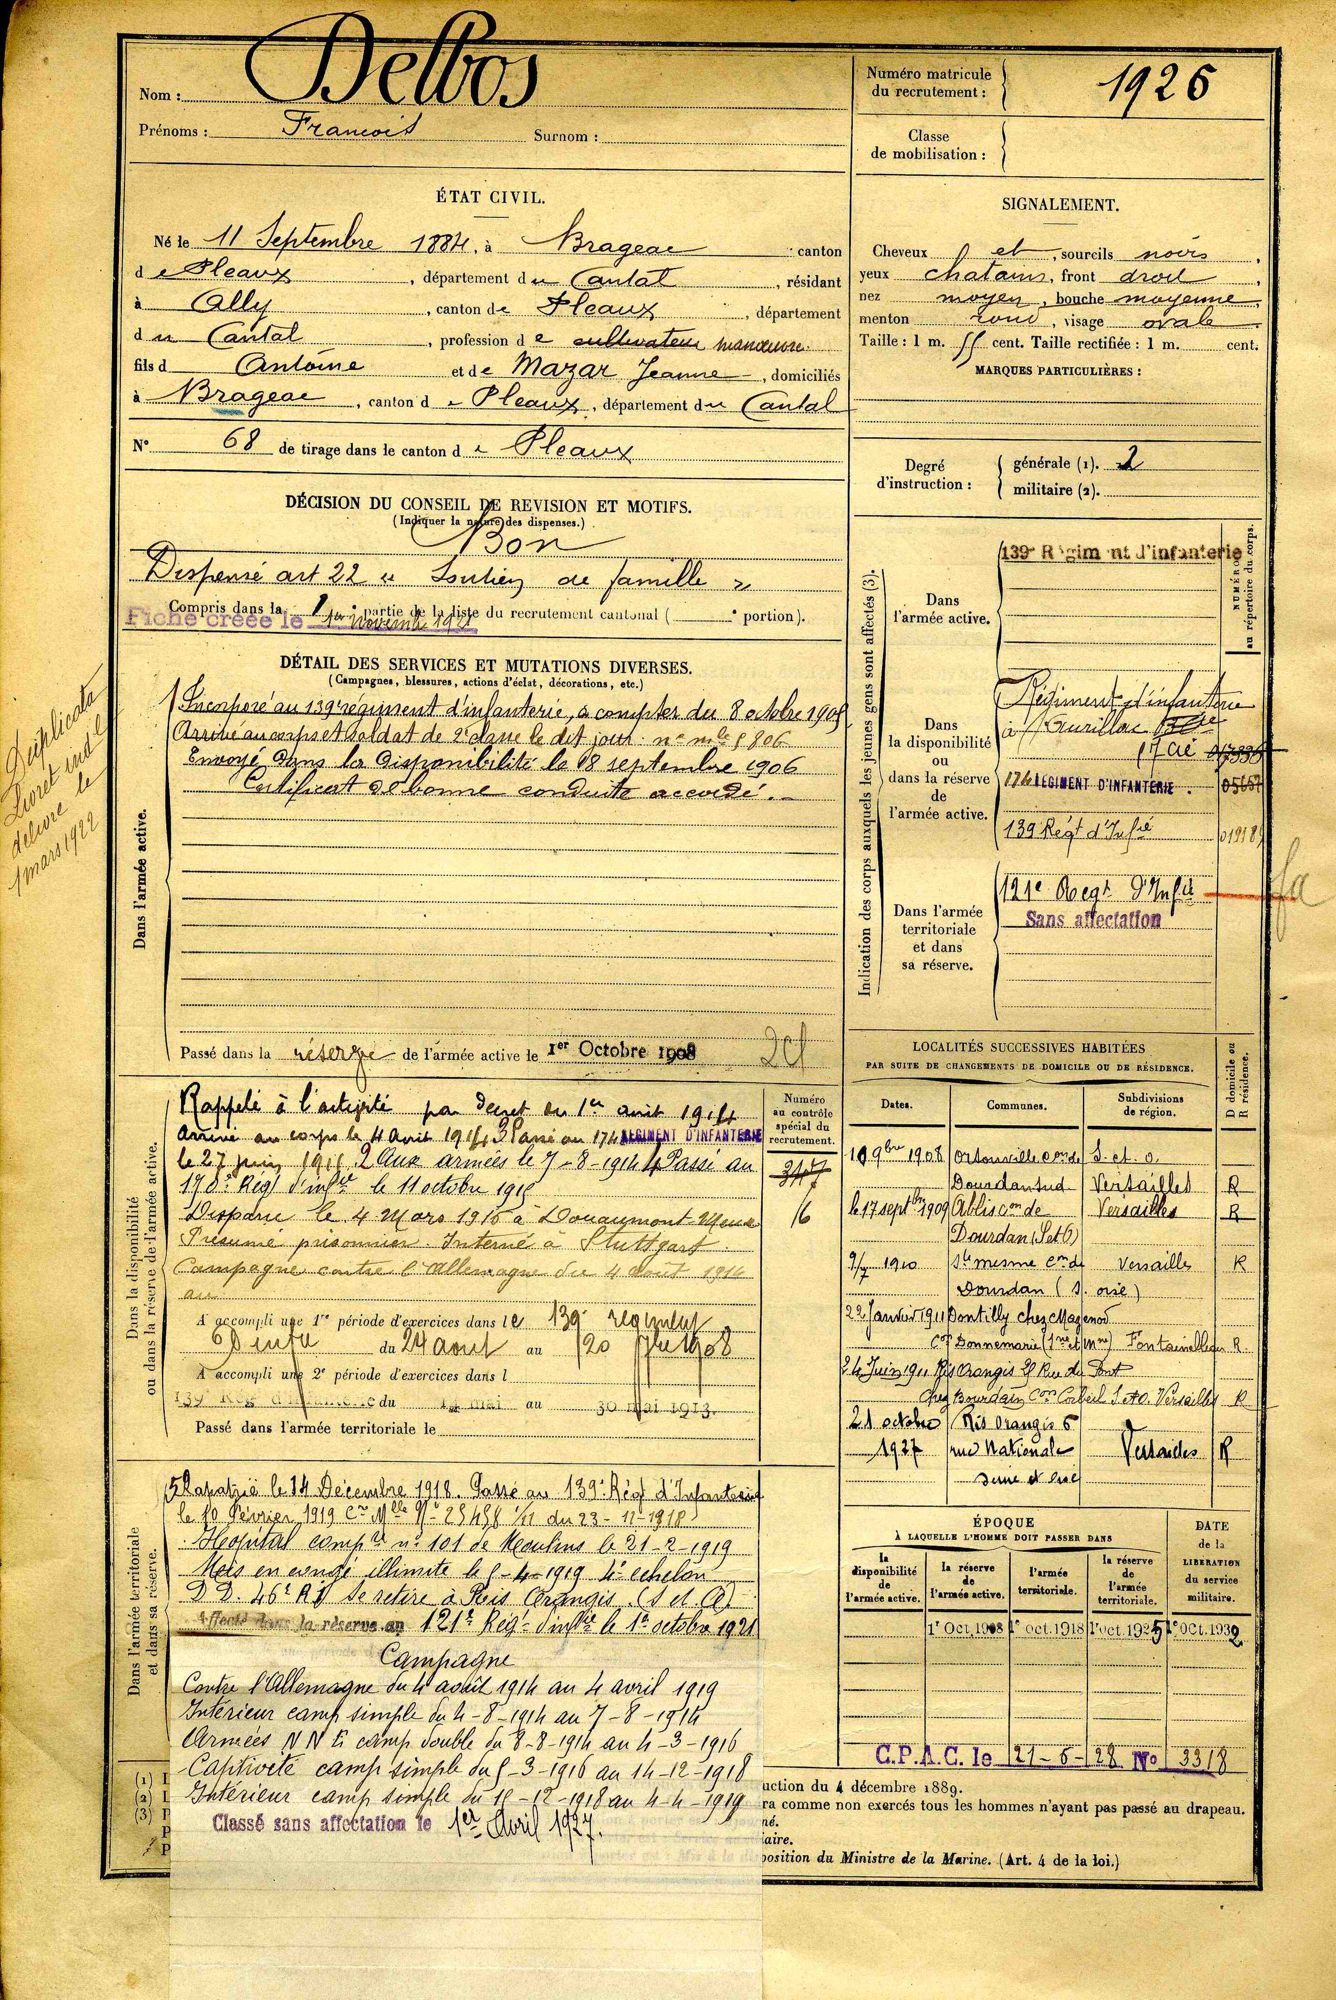 Nom : Delbos
Prénoms : François Surnom :
ÉTAT CIVIL.
Né le 11 Septembre 1884, à Brageac canton
de Pleaux, département du Cantal, résidant
à Ally, canton de Pleaux, département
du Cantal, profession de cultivateur manœuvre
fils d Antoine et de Mazar Jeanne, domiciliés
à Brageac, canton de Pleaux, département du Cantal
N° 68 de tirage dans le canton de Pleaux
DÉCISION DU CONSEIL DE REVISION ET MOTIFS.
(Indiquer la nature des dispenses.)
Bon
Dispensé art 22 "Soutien de famille"
Compris dans la 1 partie de la liste du recrutement cantonal ( e portion).
Fiche créée le 1er novemb 1921
DÉTAIL DES SERVICES ET MUTATIONS DIVERSES.
(Campagnes, blessures, actions d'éclat, décorations, etc.)
Dans l'armée active.
Incorporé au 139e régiment d'infanterie, à compter du 8 octobre 1905
Arrivé au corps et soldat de 2e classe le dit jour. n° mle 5806
Envoyé dans la disponibilité le 18 septembre 1906
Certificat de bonne conduite accordé.
Passé dans la réserve de l'armée active le 1er Octobre 1908
Duplicata
Livret indel
délivré le
1 mars 1922
Dans la disponibilité
ou dans la réserve de l'armée active.
Rappelé à l'activité par décret du 1er août 1914
arrivé au corps le 4 Août 1914 3 Passé au 174 RÉGIMENT D'INFANTERIE
le 27 juin 1915 2 Aux armées le 7-8-1914 4 Passé au
170e Régt d'infie le 11 octobre 1915
Disparu le 4 Mars 1916 à Douaumont Meuse
Présumé prisonnier. Interné à Stuttgart.
Campagne contre l'Allemagne du 4 août 1914
au
A accompli une 1re période d'exercices dans le 139e régiment
d'Infie du 24 août au 20 7bre 1908
A accompli une 2e période d'exercices dans l
139e Rég d'infanterie du 14 mai au 30 mai 1913.
Passé dans l'armée territoriale le
Numéro
au contrôle
spécial du
recrutement.
347
16
Dans l'armée territoriale
et dans sa réserve.
5 Rapatrié le 14 Décembre 1918. Passé au 139e Régt d'Infanterie
le 10 Février 1919 Cre Mlle N° 25458 1/11 du 23-11-1918
Hôpital compre n° 101 de Moulins le 21-2-1919
Mis en congé illimité le 5-4-1919 4e échelon
D D. 46e RI se retire à Ris Orangis. (S et O)
Affecté dans la réserve au 121e Régt d'infie le 1er octobre 1921
Campagne
Contre l'Allemagne du 4 août 1914 au 4 avril 1919
Intérieur camp simple du 4-8-1914 au 7-8-1914
Armées N N E camp double du 8-8-1914 au 4-3-1916
Captivité camp simple du 5-3-1916 au 14-12-1918
Intérieur camp simple du 15-12-1918 au 4-4-1919
Classé sans affectation le 1er Avril 1927.
Numéro matricule
du recrutement : 1926
Classe
de mobilisation :
SIGNALEMENT.
Cheveux et, sourcils noirs,
yeux chatains, front droit,
nez moyen, bouche moyenne,
menton rond, visage ovale
Taille : 1 m. 55 cent. Taille rectifiée : 1 m. cent.
MARQUES PARTICULIÈRES :
Degré
d'instruction :
générale (1). 2
militaire (2).
Indication des corps auxquels les jeunes gens sont affectés (3).
NUMÉRO
au répertoire du corps.
Dans
l'armée active.
139e Régim nt d'infanterie
Dans
la disponibilité
ou
dans la réserve
de
l'armée active.
Régiment d'infanterie
à Aurillac
17 Cie 07336
174 RÉGIMENT D'INFANTERIE. 05657
139 Régt d'Infie
Dans l'armée
territoriale
et dans
sa réserve.
121e Regt d'Infie
Sans affectation
LOCALITÉS SUCCESSIVES HABITÉES
PAR SUITE DE CHANGEMENTS DE DOMICILE OU DE RÉSIDENCE.
D domicile ou
R résidence.
Dates. Communes. Subdivisions
de région.
10 9bre 1908 Orsonville con de S. et. O.
Dourdan sud Versailles R
le 17 septbre 1909 Ablis con de Versailles R
Dourdan (S et O)
9/7 1910 Ste mesme con de Versailles R
Dourdan (S. oise)
22 Janvier 1911 Dontilly chez Magenod
con Donnemarie (Sne et Mne) Fontainebleau R.
24 Juin 1911 Ris Orangis Rue du Pont
chez Bourdain con Corbeil S et O. Versailles R
21 octobre Ris Orangis 6
1927 rue Nationale Versailles R
Seine et Oise
ÉPOQUE
À LAQUELLE L'HOMME DOIT PASSER DANS
DATE
de la
LIBÉRATION
du service
militaire.
la
disponibilité
de
l'armée active.
la réserve
de
l'armée active.
l'armée
territoriale.
la réserve
de
l'armée
territoriale.
1er Oct. 1908 1er oct. 1918 1er oct. 1925 1er oct. 1932
C.P.A.C. le 21-6-28 No 3318
(1) L
(2) L
(3) P
uction du 4 décembre 1889.
ra comme non exercés tous les hommes n'ayant pas passé au drapeau.
né.
aire.
position du Ministre de la Marine. (Art. 4 de la loi.)